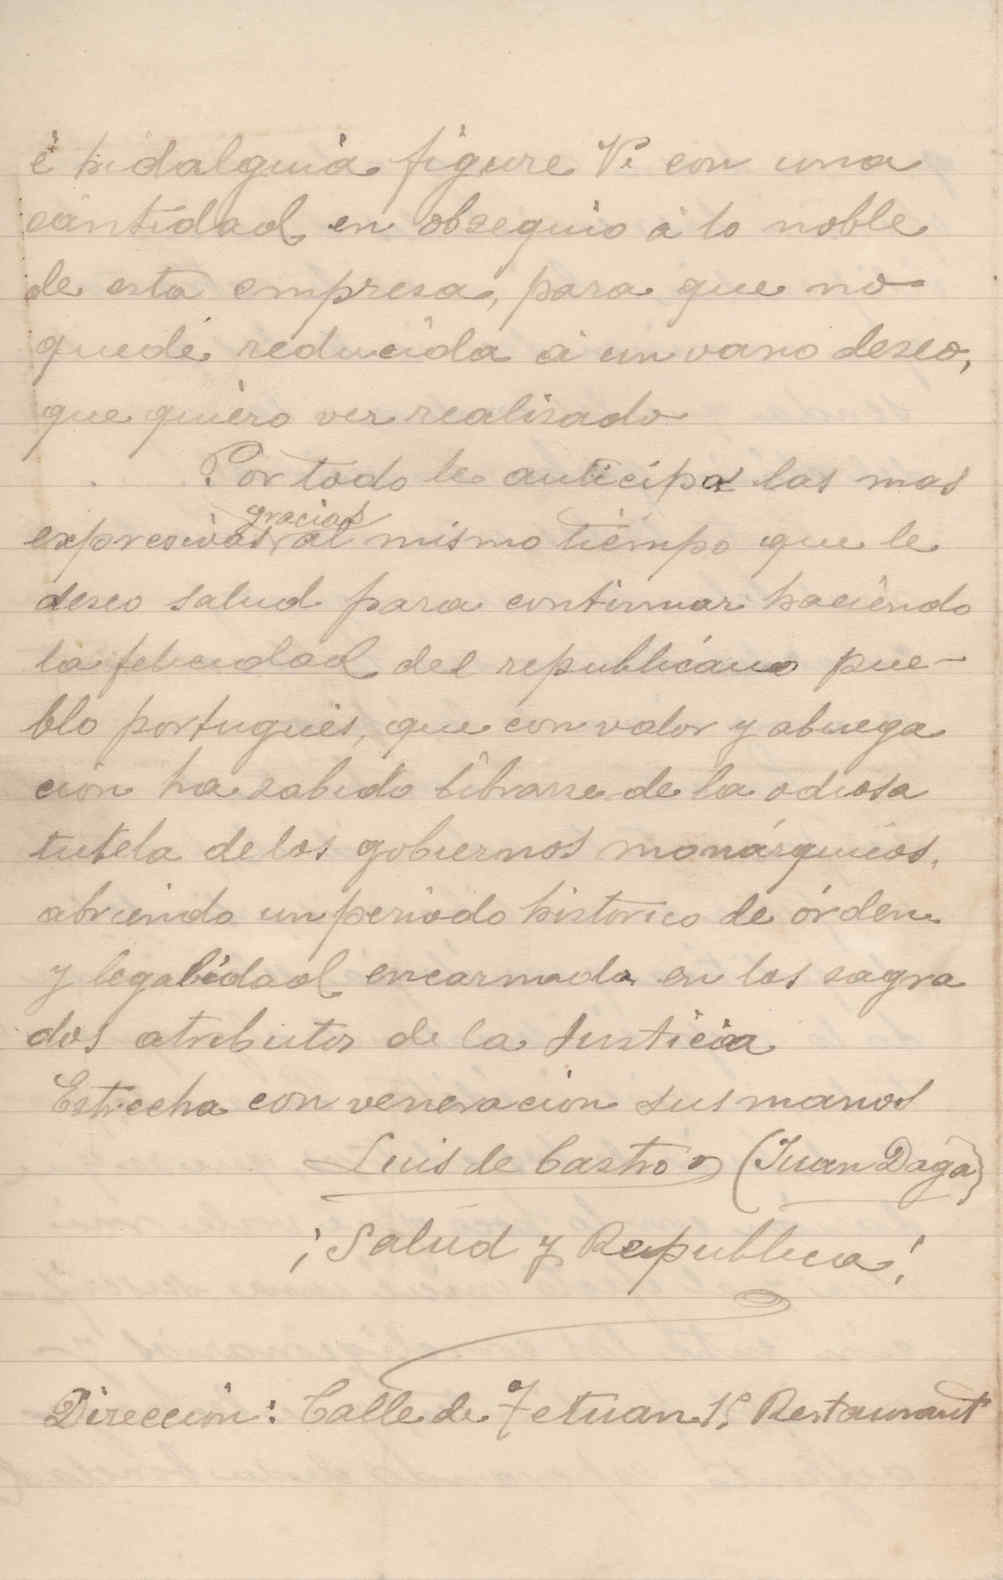 é hidalguia figure V. con una
cantidad en obsequio á lo noble
de esta empresa, para que no
quede reducida á un vano deseo,
que quiero ver realisado
Por todo le anticipa las mas
expresivas gracias al mismo tiempo que le
deseo salud para continuar haciendo
la felicidad del republicano pue-
blo portugués, que con valor y abnega
cion ha sabido librarse de la odiosa
tutela de los gobiernos monárquicos,
abriendo un periodo historico de órden
y legalidad encarnada en los sagra
dos atributos de la Justicia
Estrecha con veneracion sus manos
Luis de Castro (Juan Daga)
¡Salud y Republica!
Direccion: Calle de Tetuan Restaurant